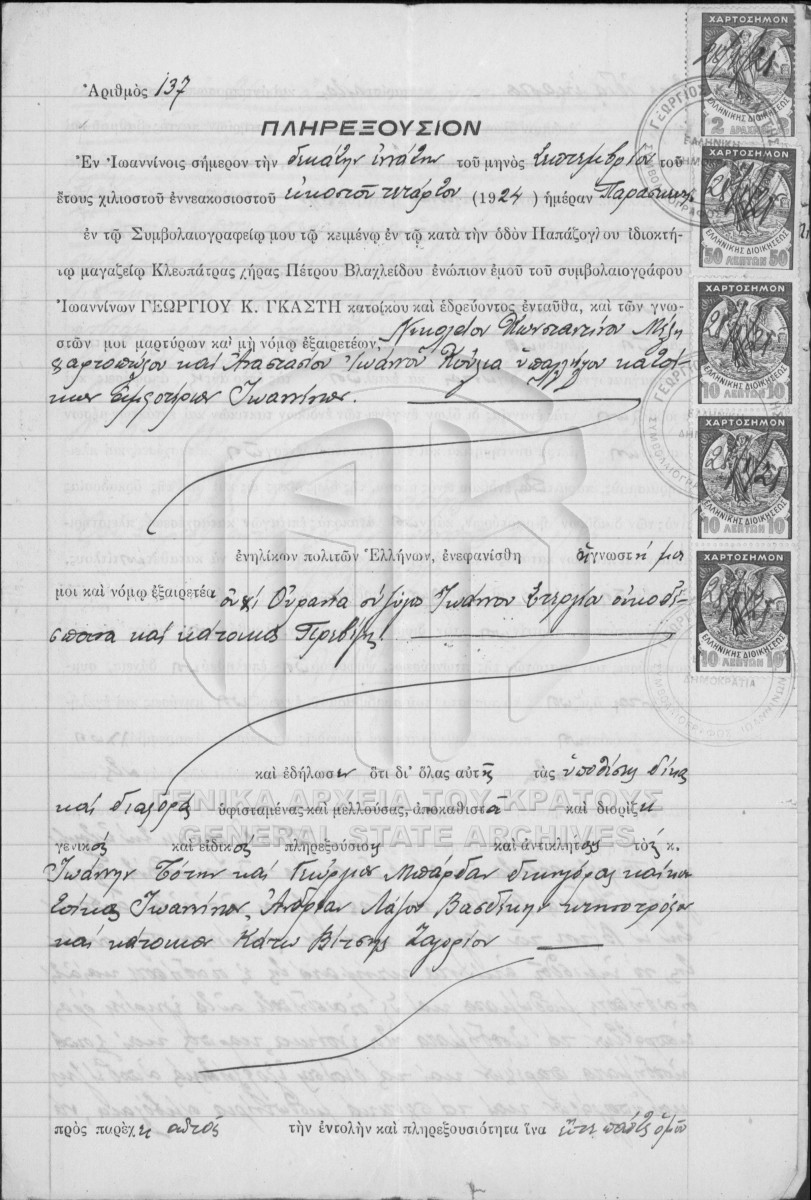 Ἀριθμὸς 137
ΠΛΗΡΕΞΟΥΣΙΟΝ
Ἐν Ἰωαννίνοις σήμερον τὴν δεκάτην ἐνάτην τοῦ μηνὸς Σεπτεμβρίου τοῦ
ἔτους χιλιοστοῦ ἐννεακοσιοστοῦ εἰκοστοῦ τετάρτου (1924) ἡμέραν Παρασκευὴν
ἐν τῷ Συμβολαιογραφείῳ μου τῷ κειμένῳ ἐν τῷ κατὰ τὴν ὁδὸν Παπάζογλου ἰδιοκτή-
τῳ μαγαζείῳ Κλεοπάτρας χήρας Πέτρου Βλαχλείδου ἐνώπιον ἐμοῦ τοῦ συμβολαιογράφου
Ἰωαννίνων ΓΕΩΡΓΙΟΥ Κ. ΓΚΑΣΤΗ κατοίκου καὶ ἑδρεύοντος ἐνταῦθα, καὶ τῶν γνω-
στῶν μοι μαρτύρων καὶ μὴ νόμῳ ἐξαιρετέων, Νικολάου Κωνσταντίνου
χαρτοπώλου καὶ Ἀναστασίου Ἰωάννου ὑπαλλήλου κατοί-
κων Ἰωαννίνων.
ἐνηλίκων πολιτῶν Ἑλλήνων, ἐνεφανίσθη ἡ γνωστή μοι
μοι καὶ νόμῳ ἐξαιρετέα οὖσα Οὐρανία σύζυγος Ἰωάννου Στεργίου οἰκοδέ-
σποινα καὶ κάτοικος Πρεβέζης.
καὶ ἐδήλωσεν ὅτι δι' ὅλας αὐτῆς τὰς ὑποθέσεις δίκας
καὶ διαφορὰς ὑφισταμένας καὶ μελλούσας, ἀποκαθιστᾷ καὶ διορίζει
γενικοὺς καὶ εἰδικοὺς πληρεξουσίους καὶ ἀντικλήτους τοὺς κ.
Ἰωάννην καὶ Γεώργιον Μπάρδαν δικηγόρους κατοί-
κους Ἰωαννίνων, Ἀνδρέαν Λάζου κτηνοτρόφον
καὶ κάτοικον Κάτω Βίτσης Ζαγορίου
πρὸς παρέχει αὐτοῖς τὴν ἐντολὴν καὶ πληρεξουσιότητα ἵνα εἴτε πάντες ὁμοῦ
ΧΑΡΤΟΣΗΜΟΝ
ΕΛΛΗΝΙΚΗΣ ΔΙΟΙΚΗΣΕΩΣ
2 ΔΡΑΧΜΑΙ 2
ΕΛΛΗΝΙΚΗΣ ΔΙΟΙΚΗΣΕΩΣ
50 ΛΕΠΤΩΝ 50
ΧΑΡΤΟΣΗΜΟΝ
ΕΛΛΗΝΙΚΗΣ ΔΙΟΙΚΗΣΕΩΣ
10 ΛΕΠΤΩΝ 10
ΧΑΡΤΟΣΗΜΟΝ
ΕΛΛΗΝΙΚΗΣ ΔΙΟΙΚΗΣΕΩΣ
10 ΛΕΠΤΩΝ 10
ΧΑΡΤΟΣΗΜΟΝ
ΕΛΛΗΝΙΚΗΣ ΔΙΟΙΚΗΣΕΩΣ
10 ΛΕΠΤΩΝ 10
ΓΕΝΙΚΑ ΑΡΧΕΙΑ ΤΟΥ ΚΡΑΤΟΥΣ
GENERAL STATE ARCHIVES